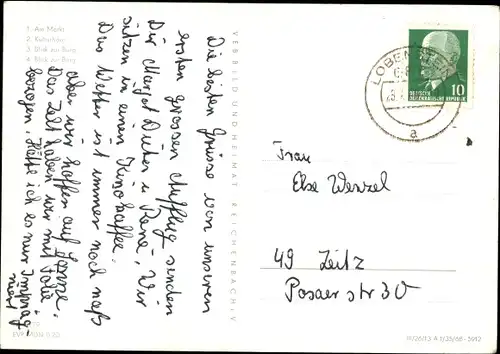 1. Am Markt
2. Kulturhaus
3. Blick zur Burg
4. Blick zur Burg
VEB BILD UND HEIMAT REICHENBACH i.V.
Die besten Grüsse von unseren
ersten grossen Ausflug senden
Dir Margot Dieter u René, Wir
sitzen in einen Kinokaffee.
Das Wetter ist immer noch naß
aber wir hoffen auf Sonne.
Das Zelt haben wir mit Folie
bezogen. Hätte ich es nur
LOBENSTEIN
a
DEUTSCHE
DEMOKRATISCHE REPUBLIK
10
Frau
Else Wenzel
49 Zeitz
Posaer str 30